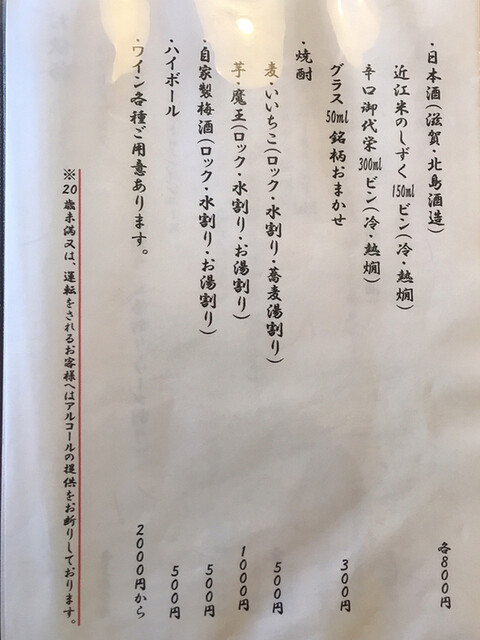 ・日本酒(滋賀・北島酒造) 各800円
近江米のしずく 150ml ビン(冷・熱燗)
辛口御代栄 300ml ビン(冷・熱燗)
グラス 50ml 銘柄おまかせ 300円
・焼酎
麦・いいちこ(ロック・水割り・蕎麦湯割り) 500円
芋・魔王(ロック・水割り・お湯割り) 1000円
・自家製梅酒(ロック・水割り・お湯割り) 500円
・ハイボール 500円
・ワイン各種ご用意あります。 2000円から
※20歳未満又は、運転をされるお客様へはアルコールの提供をお断りしております。